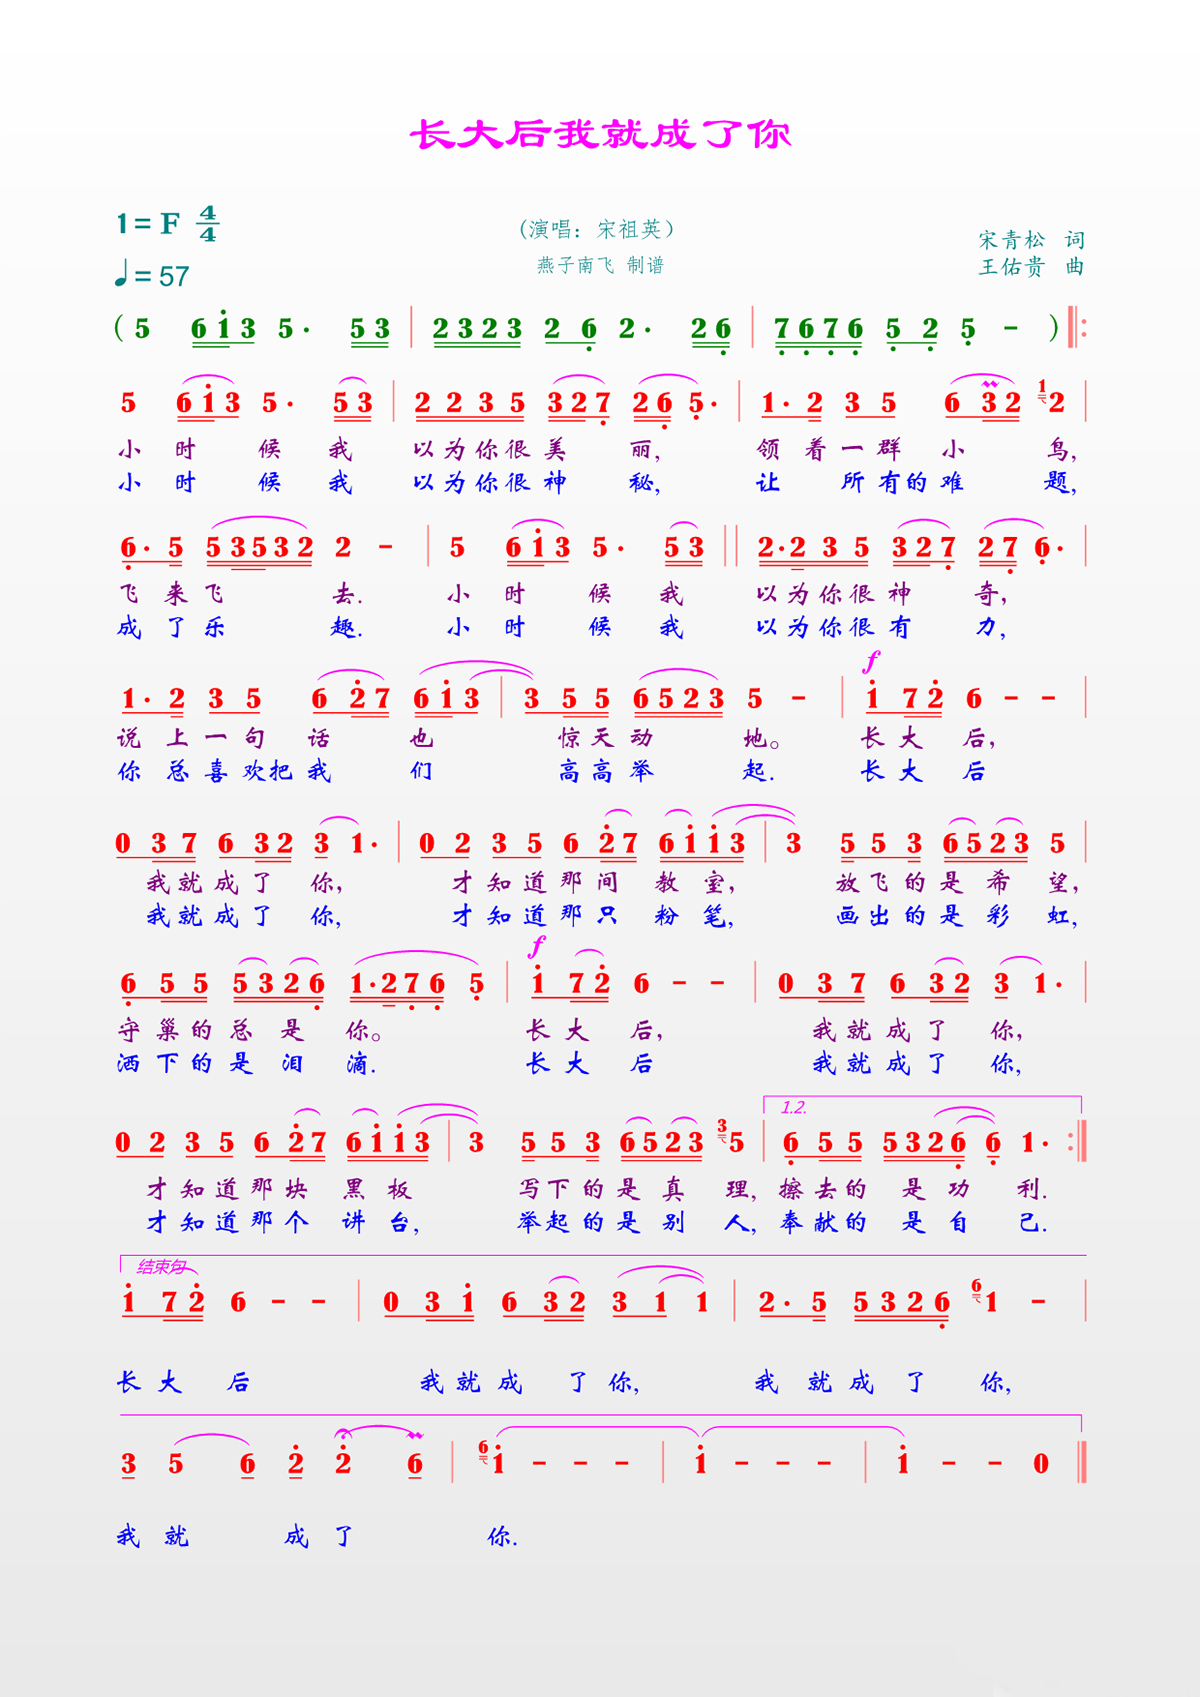 长大后我就成了你
1= F 4/4
(演唱：宋祖英）
宋青松 词
♩= 57
燕子南飞 制谱
王佑贵 曲
( 5 6i3 5· 53 | 2323 26 2· 26 | 7676 52 5 - )
5 6i3 5· 53 | 2235 327 265· | 1·2 35 632 1 2
小时候我 以为你很美丽, 领着一群小鸟,
小时候我 以为你很神秘, 让所有的难题,
6·5 53532 2 - | 5 6i3 5· 53 || 2·235 327 276·
飞来飞去. 小时候我 以为你很神奇,
成了乐趣. 小时候我 以为你很有力,
f
1·2 35 627 6i3 | 355 6523 5 - | i72 6 - -
说上一句话也 惊天动地。 长大后,
你总喜欢把我们 高高举起. 长大后
037 632 31· | 023 35 627 6ii3 | 3 553 6523 5
我就成了你, 才知道那间教室, 放飞的是希望,
我就成了你, 才知道那只粉笔, 画出的是彩虹,
f
655 5326 1·276 5 | i72 6 - - | 037 632 31·
守巢的总是你。 长大后, 我就成了你,
洒下的是泪滴. 长大后 我就成了你,
1.2.
02 35 627 6ii3 | 3 553 6523 3 5 | 655 5326 6 1·
才知道那块黑板 写下的是真理, 擦去的是功利.
才知道那个讲台, 举起的是别人, 奉献的是自己.
结束句
i72 6 - - | 03i 632 311 | 2·5 5326 6 1 -
长大后 我就成了你, 我就成了你,
3 5 6 2 2 6 | 6 i - - - | i - - - | i - - 0
我就成了你.